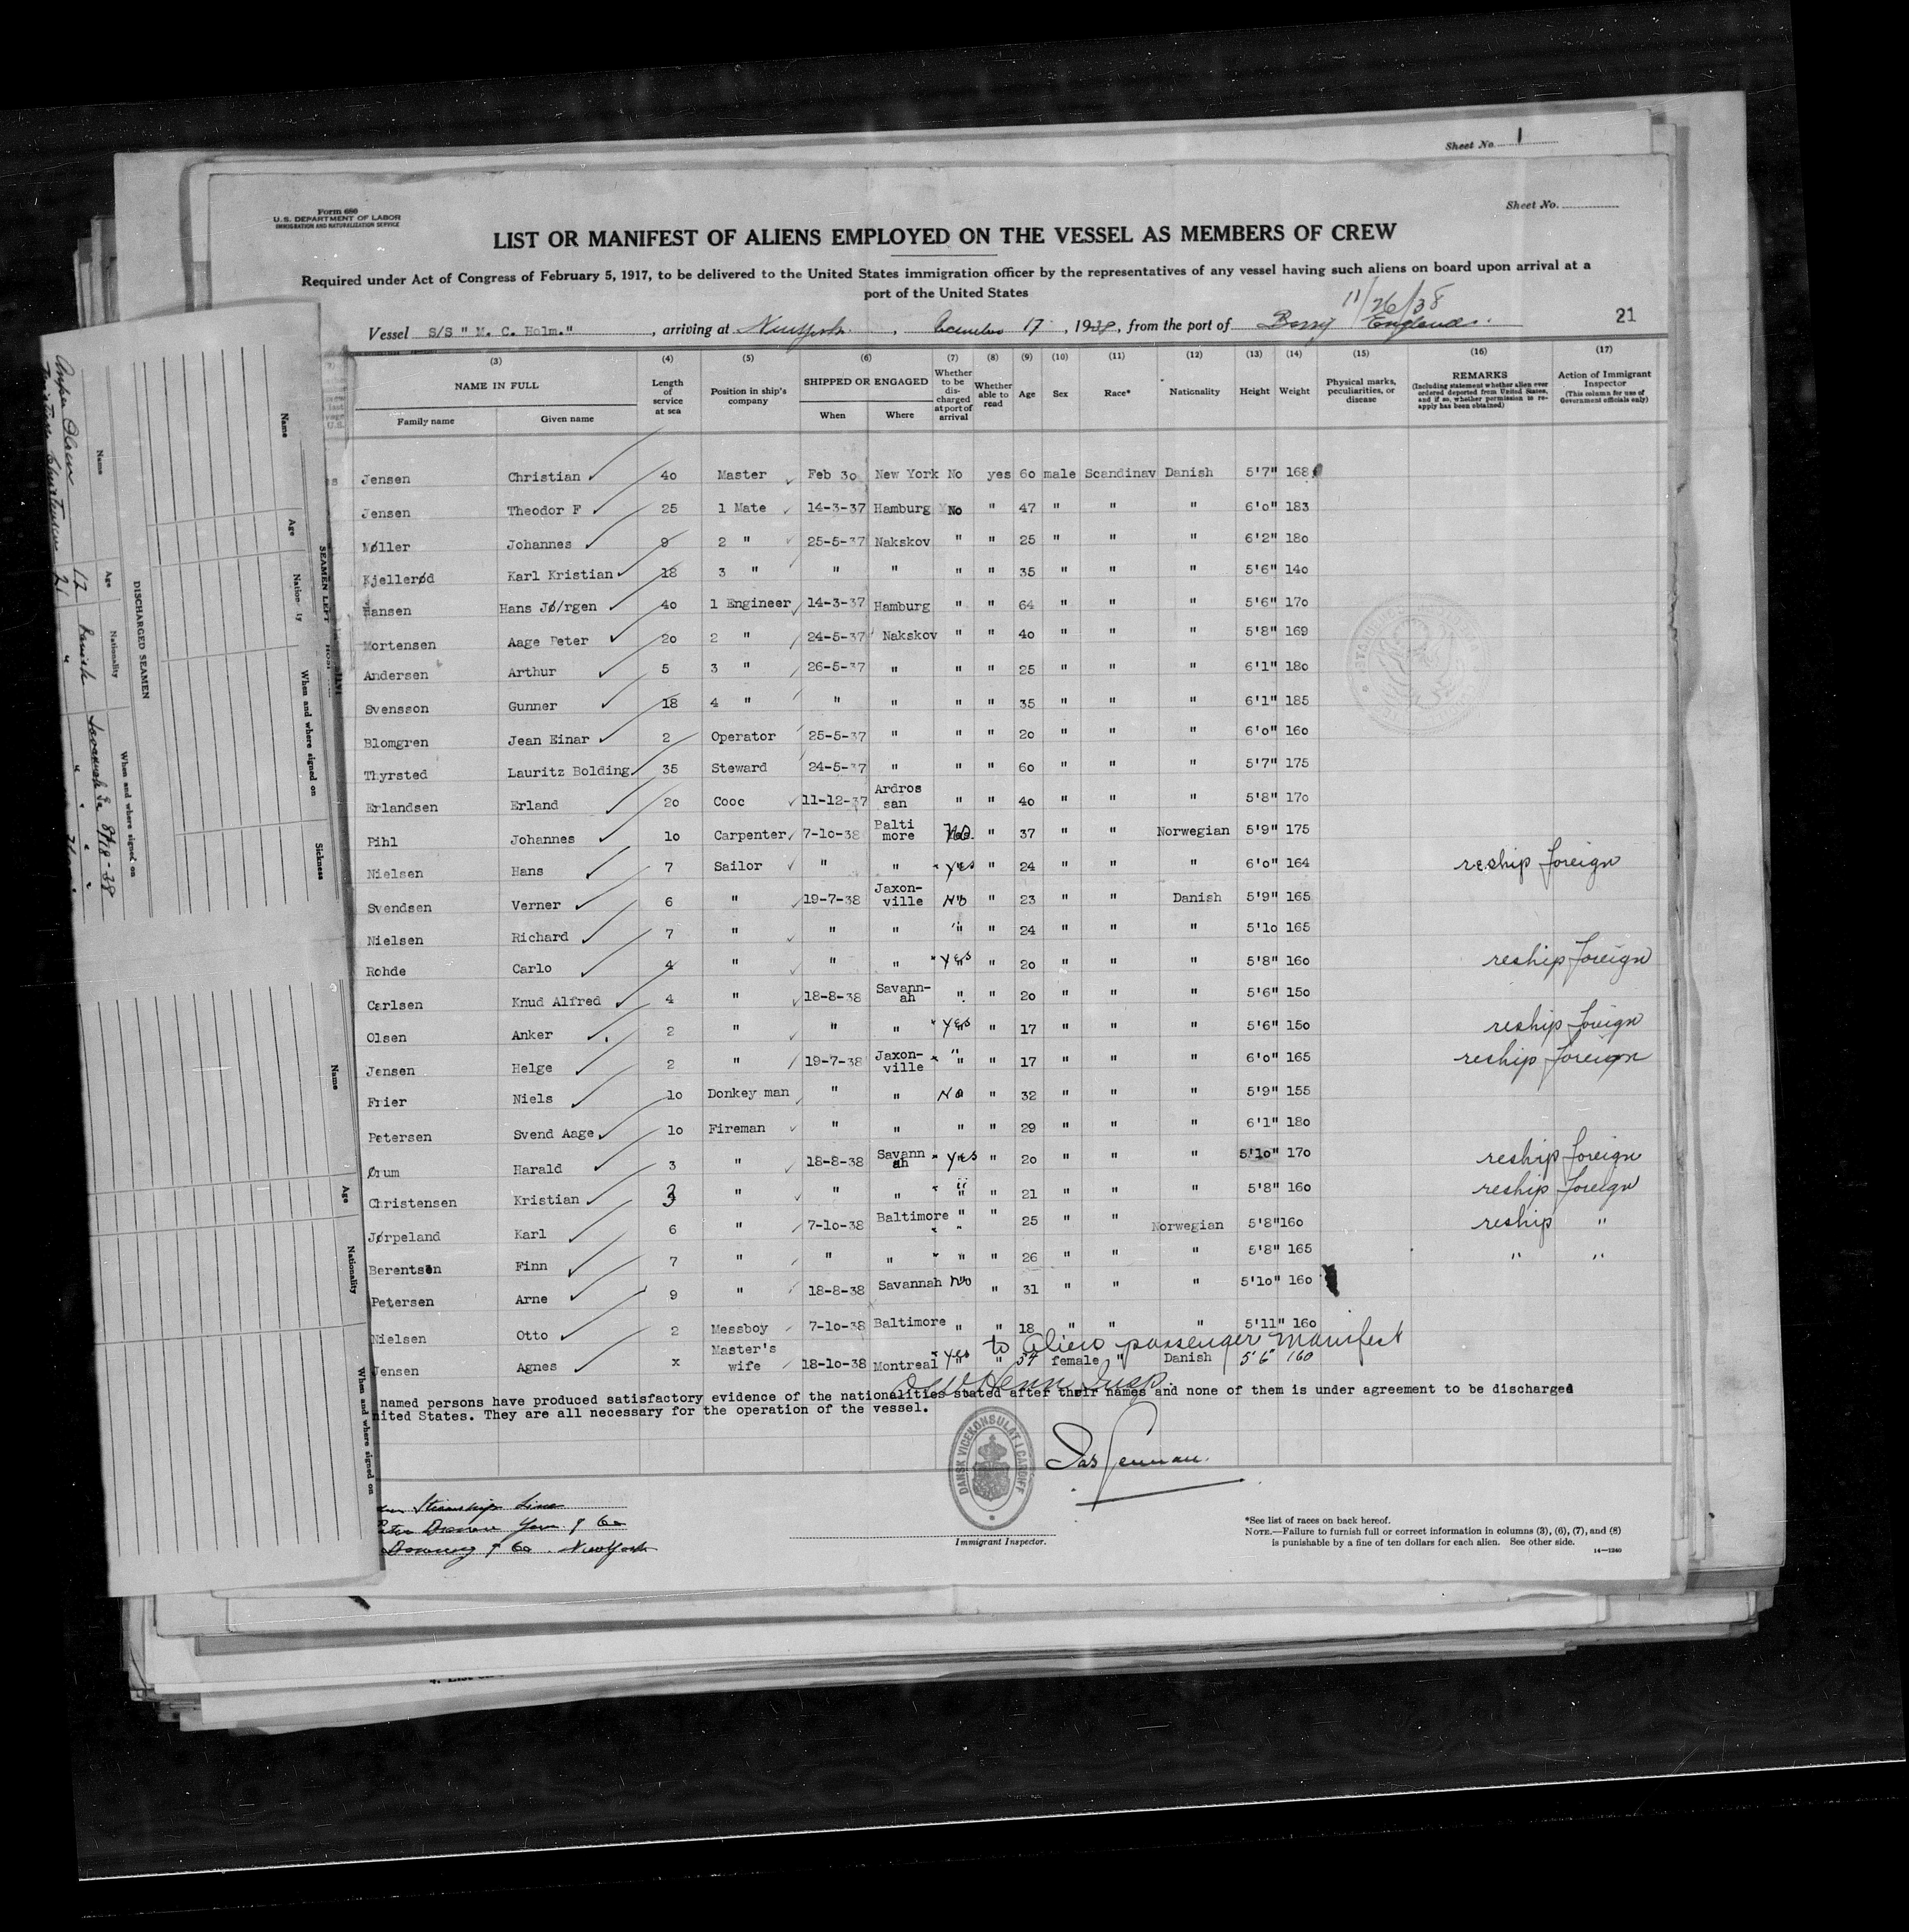 Sheet No. 1
Form 680
U. S. DEPARTMENT OF LABOR
IMMIGRATION AND NATURALIZATION SERVICE
Sheet No.
LIST OR MANIFEST OF ALIENS EMPLOYED ON THE VESSEL AS MEMBERS OF CREW
Required under Act of Congress of February 5, 1917, to be delivered to the United States immigration officer by the representatives of any vessel having such aliens on board upon arrival at a
port of the United States
11/26/38
Vessel S/S " M. C. Holm." , arriving at New York , December 17 , 1938, from the port of Barry England. 21
(3) (4) (5) (6) (7) (8) (9) (10) (11) (12) (13) (14) (15) (16) (17)
NAME IN FULL Length of service at sea Position in ship's company SHIPPED OR ENGAGED Whether to be discharged at port of arrival Whether able to read Age Sex Race* Nationality Height Weight Physical marks, peculiarities, or disease REMARKS (Including statement whether alien ever ordered deported from United States, and if so, whether permission to reapply has been obtained) Action of Immigrant Inspector (This column for use of Government officials only)
Family name Given name When Where
Jensen Christian 40 Master Feb 30 New York No yes 60 male Scandinav Danish 5'7" 168
Jensen Theodor F 25 1 Mate 14-3-37 Hamburg No " 47 " " " 6'0" 183
Møller Johannes 9 2 " 25-5-37 Nakskov " " 25 " " " 6'2" 180
Kjellerød Karl Kristian 18 3 " " " " " 35 " " " 5'6" 140
Hansen Hans Jø/rgen 40 1 Engineer 14-3-37 Hamburg " " 64 " " " 5'6" 170
Mortensen Aage Peter 20 2 " 24-5-37 Nakskov " " 40 " " " 5'8" 169
Andersen Arthur 5 3 " 26-5-37 " " " 25 " " " 6'1" 180
Svensson Gunner 18 4 " " " " " 35 " " " 6'1" 185
Blomgren Jean Einar 2 Operator 25-5-37 " " " 20 " " " 6'0" 160
Thyrsted Lauritz Bolding 35 Steward 24-5-37 " " " 60 " " " 5'7" 175
Erlandsen Erland 20 Cooc 11-12-37 Ardros san " " 40 " " " 5'8" 170
Pihl Johannes 10 Carpenter 7-10-38 Balti more No. " 37 " " Norwegian 5'9" 175
Nielsen Hans 7 Sailor " " yes " 24 " " " 6'0" 164 reship foreign
Svendsen Verner 6 " 19-7-38 Jaxon- ville No " 23 " " Danish 5'9" 165
Nielsen Richard 7 " " " " " 24 " " " 5'10 165
Rohde Carlo 4 " " " yes " 20 " " " 5'8" 160 reship foreign
Carlsen Knud Alfred 4 " 18-8-38 Savann- ah " " 20 " " " 5'6" 150
Olsen Anker 2 " " " yes " 17 " " " 5'6" 150 reship foreign
Jensen Helge 2 " 19-7-38 Jaxon- ville " " 17 " " " 6'0" 165 reship foreign
Frier Niels 10 Donkey man " " No " 32 " " " 5'9" 155
Petersen Svend Aage 10 Fireman " " " " 29 " " " 6'1" 180
Ørum Harald 3 " 18-8-38 Savann ah yes " 20 " " " 5'10" 170 reship foreign
Christensen Kristian 3 " " " " " 21 " " " 5'8" 160 reship foreign
Jørpeland Karl 6 " 7-10-38 Baltimore " " 25 " " Norwegian 5'8" 160 reship "
Berentsen Finn 7 " " " " " 26 " " " 5'8" 165 " "
Petersen Arne 9 " 18-8-38 Savannah No " 31 " " " 5'10" 160
Nielsen Otto 2 Messboy 7-10-38 Baltimore " " 18 " " " 5'11" 160
to alien passenger manifest
Jensen Agnes x Master's wife 18-10-38 Montreal yes " 54 female " Danish 5'6" 160
named persons have produced satisfactory evidence of the nationalities stated after their names and none of them is under agreement to be discharged
nited States. They are all necessary for the operation of the vessel.
DANSK VICEKONSULAT I CARDIFF
Steamship Line
New York
Immigrant Inspector.
*See list of races on back hereof.
NOTE.—Failure to furnish full or correct information in columns (3), (6), (7), and (8)
is punishable by a fine of ten dollars for each alien. See other side.
14—1240
SEAMEN LEFT
Name Age Nationality When and where signed on Sickness
DISCHARGED SEAMEN
Name Age Nationality When and where signed on
Anker Olsen 17 Danish Savannah Ga 8/18-38
Kristian Christensen 21 " " " "
Name Age Nationality When and where signed on